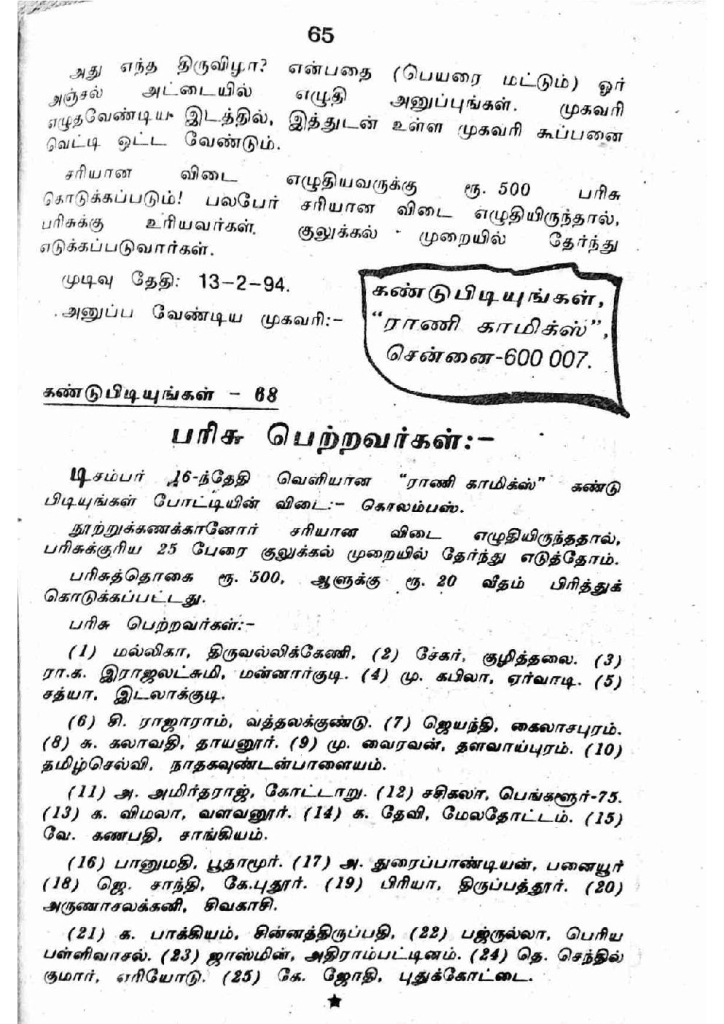 65
அது எந்த திருவிழா? என்பதை (பெயரை மட்டும்) ஓர்
அஞ்சல் அட்டையில் எழுதி அனுப்புங்கள். முகவரி
எழுதவேண்டிய இடத்தில், இத்துடன் உள்ள முகவரி கூப்பனை
வெட்டி ஒட்ட வேண்டும்.
சரியான விடை எழுதியவருக்கு ரூ. 500 பரிசு
கொடுக்கப்படும்! பலபேர் சரியான விடை எழுதியிருந்தால்,
பரிசுக்கு உரியவர்கள். குலுக்கல் முறையில் தேர்ந்து
எடுக்கப்படுவார்கள்.
முடிவு தேதி: 13-2-94.
அனுப்ப வேண்டிய முகவரி:-
கண்டுபிடியுங்கள்,
“ராணி காமிக்ஸ்”,
சென்னை-600 007.
கண்டுபிடியுங்கள் - 68
பரிசு பெற்றவர்கள்:-
டிசம்பர் 16-ந்தேதி வெளியான “ராணி காமிக்ஸ்” கண்டு
பிடியுங்கள் போட்டியின் விடை:- கொலம்பஸ்.
நூற்றுக்கணக்கானோர் சரியான விடை எழுதியிருந்ததால்,
பரிசுக்குரிய 25 பேரை குலுக்கல் முறையில் தேர்ந்து எடுத்தோம்.
பரிசுத்தொகை ரூ. 500, ஆளுக்கு ரூ. 20 வீதம் பிரித்துக்
கொடுக்கப்பட்டது.
பரிசு பெற்றவர்கள்:-
(1) மல்லிகா, திருவல்லிக்கேணி, (2) சேகர், குழித்தலை. (3)
ரா.க. இராஜலட்சுமி, மன்னார்குடி. (4) மு. கபிலா, ஏர்வாடி. (5)
சத்யா, இடலாக்குடி.
(6) சி. ராஜாராம், வத்தலக்குண்டு. (7) ஜெயந்தி, கைலாசபுரம்.
(8) சு. கலாவதி, தாயனூர். (9) மு. வைரவன், தளவாய்புரம். (10)
தமிழ்செல்வி, நாதகவுண்டன்பாளையம்.
(11) அ. அமிர்தராஜ், கோட்டாறு. (12) சசிகலா, பெங்களூர்-75.
(13) க. விமலா, வளவனூர். (14) க. தேவி, மேலதோட்டம். (15)
வே. கணபதி, சாங்கியம்.
(16) பானுமதி, பூதாமூர். (17) அ. துரைப்பாண்டியன், பனையூர்
(18) ஜெ. சாந்தி, கே.புதூர். (19) பிரியா, திருப்பத்தூர். (20)
அருணாசலக்கனி, சிவகாசி.
(21) க. பாக்கியம், சின்னத்திருப்பதி, (22) பஜ்ருல்லா, பெரிய
பள்ளிவாசல். (23) ஜாஸ்மின், அதிராம்பட்டினம். (24) தெ. செந்தில்
குமார், ஏரியோடு. (25) கே. ஜோதி, புதுக்கோட்டை.